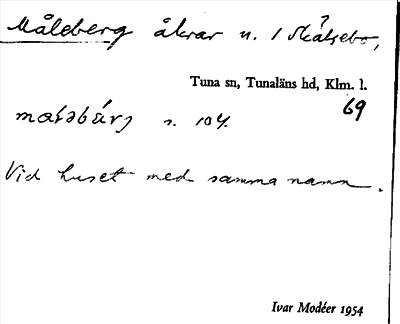 Måleberg åkrar n. 1 Skälsebo,
?
Tuna sn, Tunaläns hd, Klm. l.
69
s. 104.
Vid huset med samma namn.
Ivar Modéer 1954